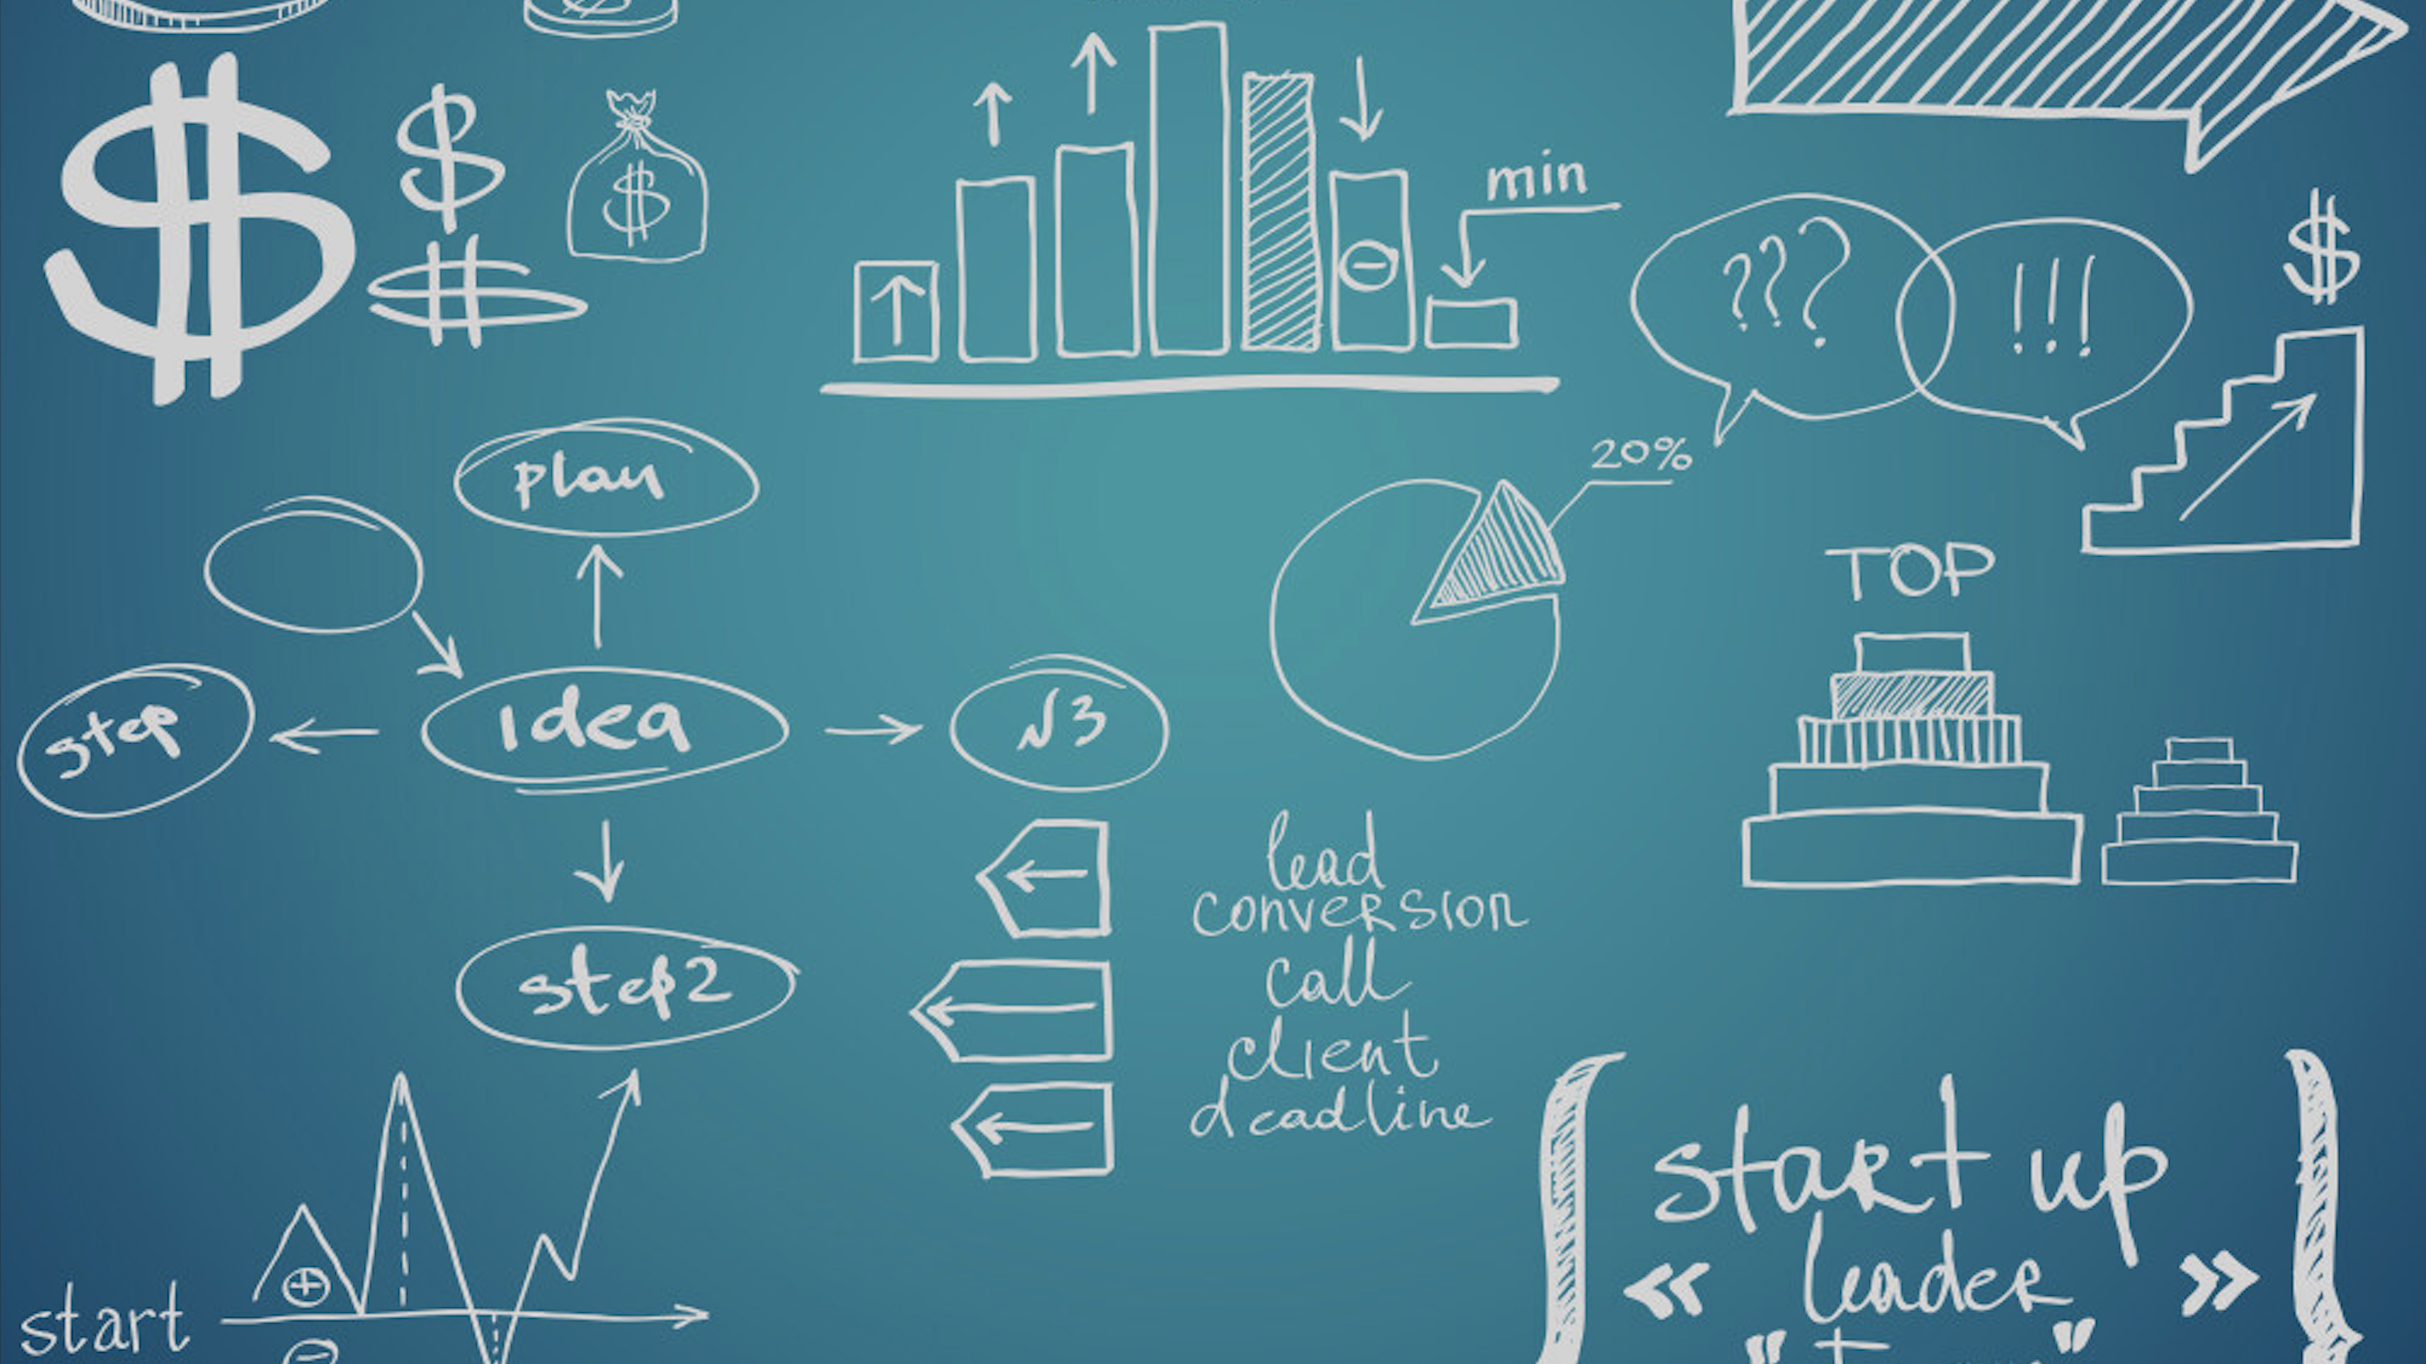 $
$
$
$
min
???
!!!
$
20%
plan
TOP
step
idea
√3
step2
lead
conversion
call
client
deadline
start up
« leader »
start